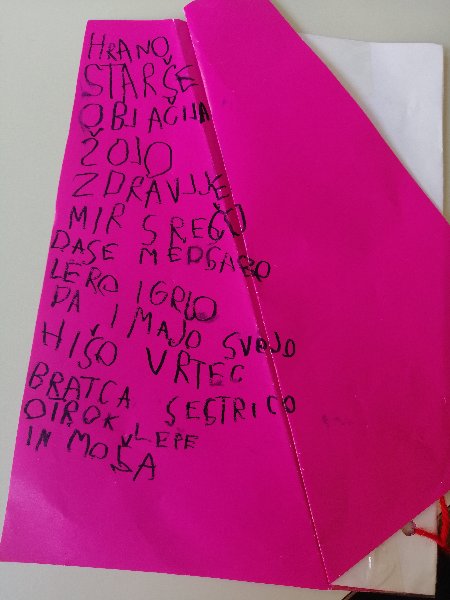 HRANO
STARŠE
OBLAČILA
ŽOJO
ZDRAVJJE
MIR SREČO
DASE MEDSABO
LERO IGRJO
DA IMAJO SVOJO
HIŠO VRTEC
BRATCA SESTRICO
OTROK VLEPE
IN MOŠA